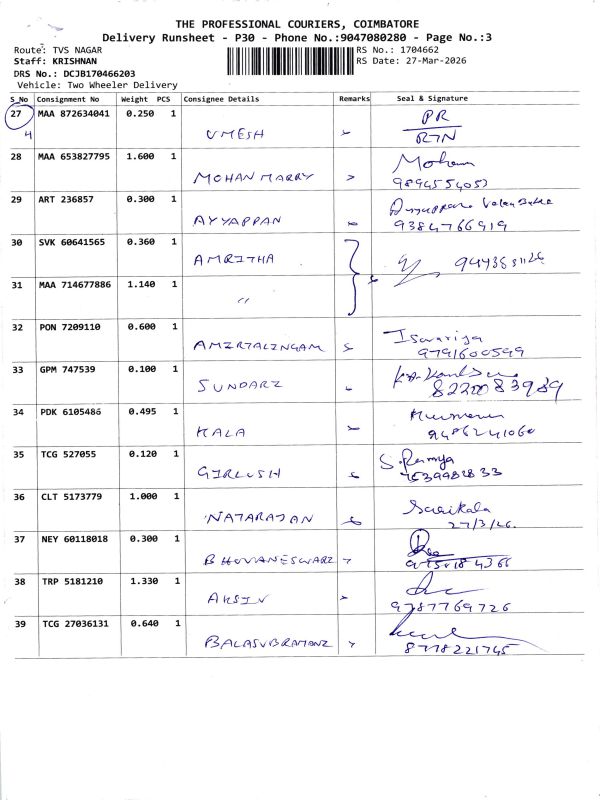 THE PROFESSIONAL COURIERS, COIMBATORE
Delivery Runsheet - P30 - Phone No.:9047080280 - Page No.:3
Route: TVS NAGAR
Staff: KRISHNAN
DRS No.: DCJB170466203
Vehicle: Two Wheeler Delivery
RS No.: 1704662
RS Date: 27-Mar-2026
S_No Consignment No Weight PCS Consignee Details Remarks Seal & Signature
27 MAA 872634041 0.250 1 PR
4 UMESH RTN
28 MAA 653827795 1.600 1 Mohan
MOHAN MARRY 9894554053
29 ART 236857 0.300 1
AYYAPPAN 9384766919
30 SVK 60641565 0.360 1
AMRITHA
31 MAA 714677886 1.140 1
"
32 PON 7209110 0.600 1 Iswariya
AMIRTALINGAM 9791600599
33 GPM 747539 0.100 1
SUNDARI 8220083989
34 PDK 6105486 0.495 1
KALA 9486241060
35 TCG 527055 0.120 1 S.Ramya
GIRLUSH
36 CLT 5173779 1.000 1 Sasikala
NATARAJAN 27/3/26.
37 NEY 60118018 0.300 1
BHUVANESWARI
38 TRP 5181210 1.330 1
AKSIV 9787769726
39 TCG 27036131 0.640 1
BALASUBRAMONI 8778221745